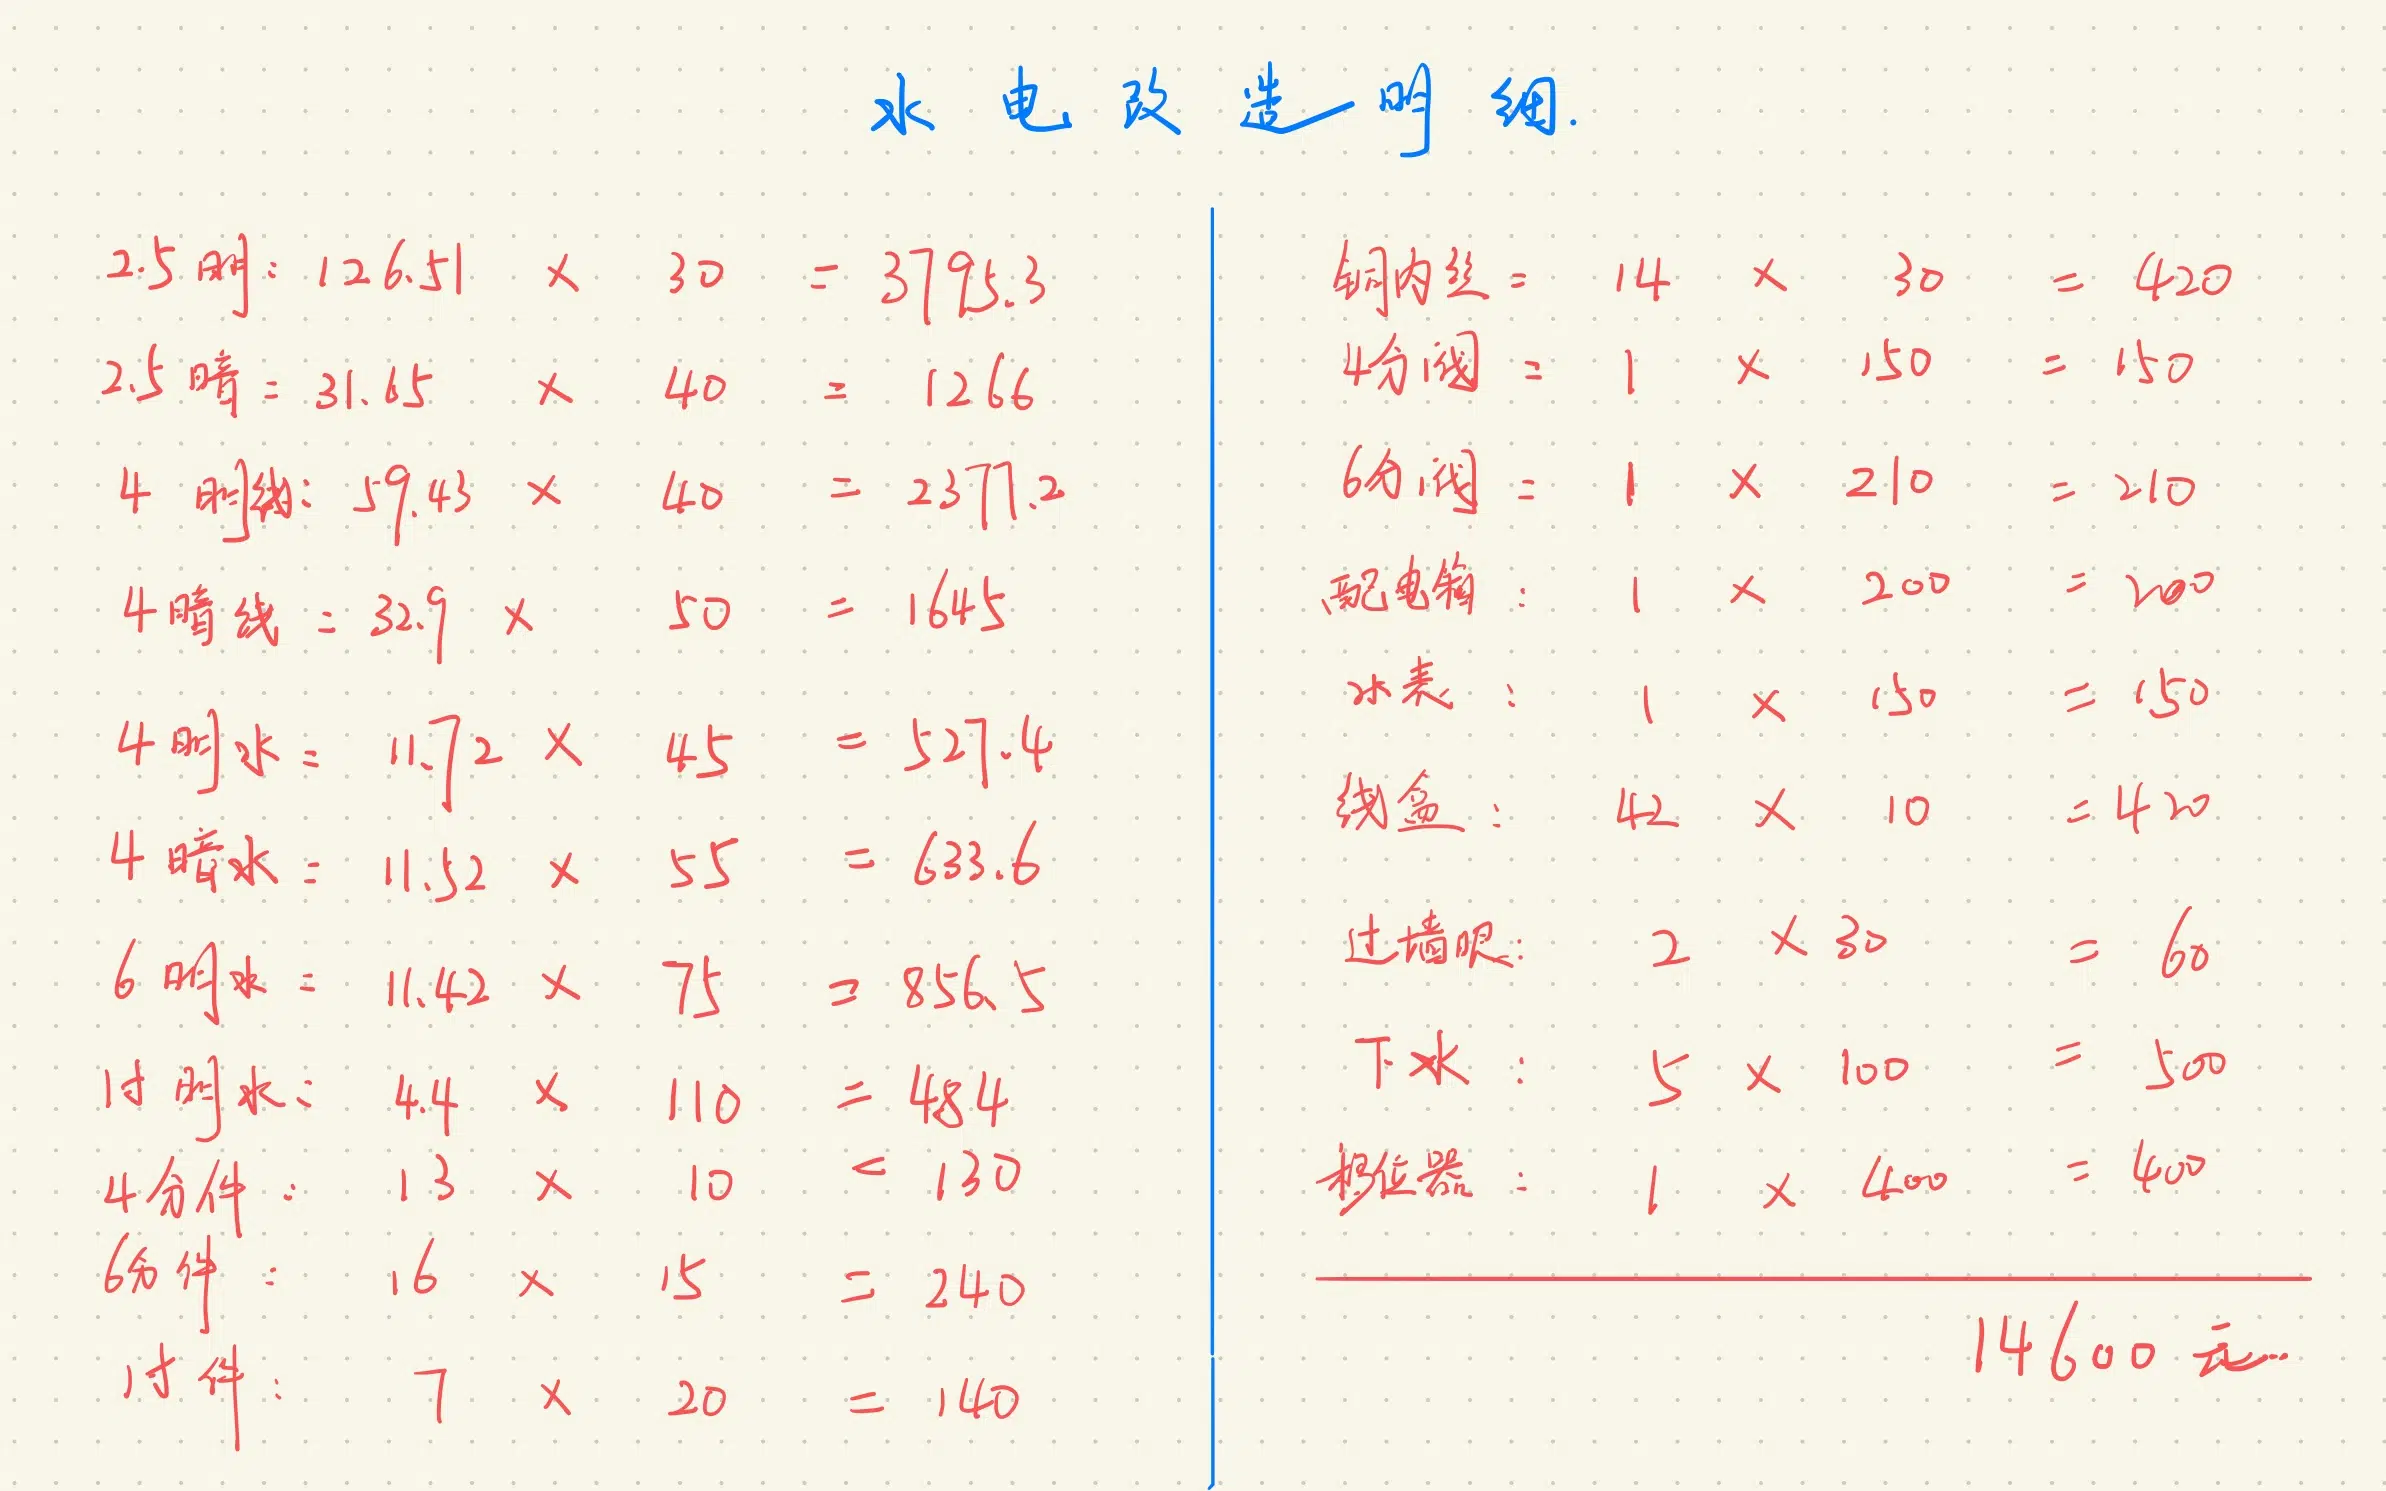 水电改造明细.
2.5明: 126.51 × 30 = 3795.3
2.5暗 = 31.65 × 40 = 1266
4 明线: 59.43 × 40 = 2377.2
4暗线 = 32.9 × 50 = 1645
4明水 = 11.72 × 45 = 527.4
4暗水 = 11.52 × 55 = 633.6
6明水 = 11.42 × 75 = 856.5
1寸明水: 4.4 × 110 = 484
4分件: 13 × 10 = 130
6分件: 16 × 15 = 240
1寸件: 7 × 20 = 140
铜内丝 = 14 × 30 = 420
4分阀 = 1 × 150 = 150
6分阀 = 1 × 210 = 210
配电箱: 1 × 200 = 200
水表: 1 × 150 = 150
线盒: 42 × 10 = 420
过墙眼: 2 × 30 = 60
下水: 5 × 100 = 500
移位器: 1 × 400 = 400
14600元